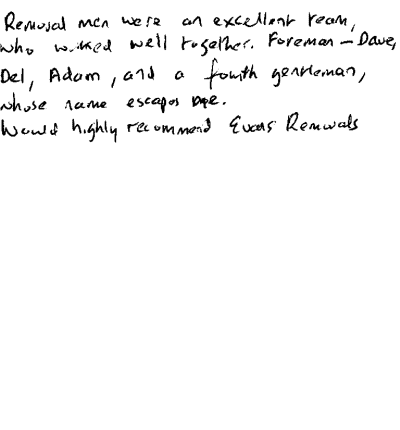 Removal men were an excellent team,
who worked well together. Foreman – Dave,
Del, Adam, and a fourth gentleman,
whose name escapes me.
Would highly recommend Evans Removals